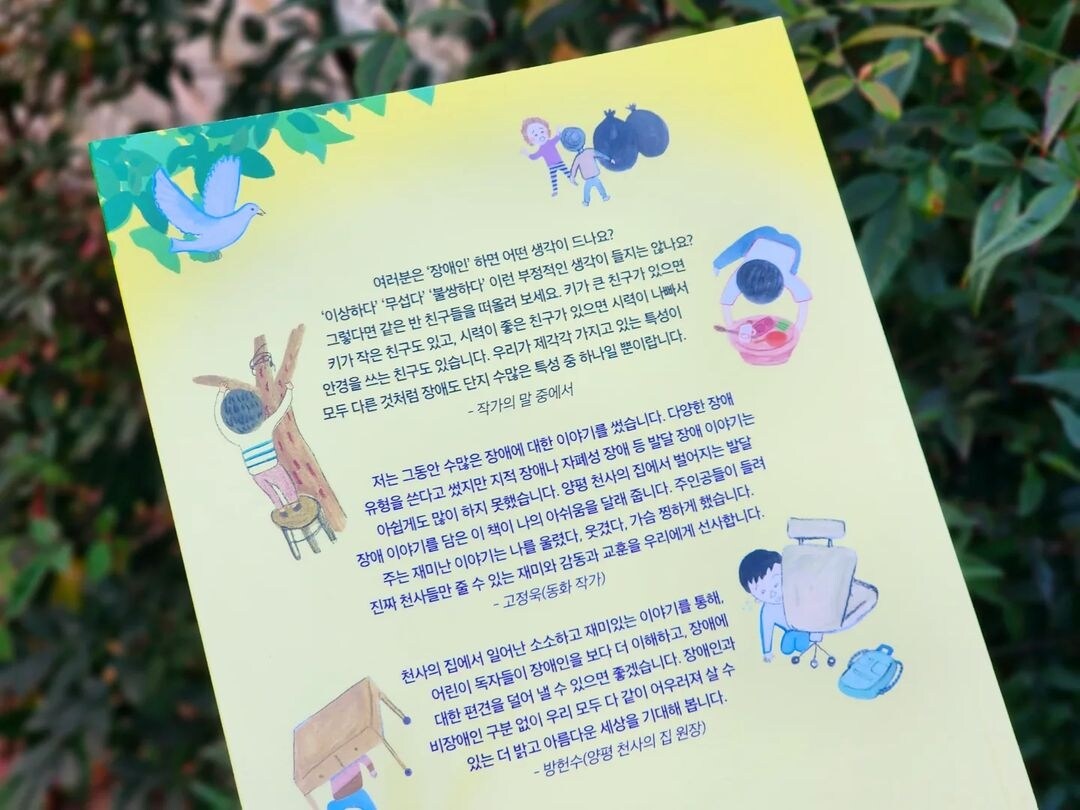 여러분은 '장애인' 하면 어떤 생각이 드나요?
'이상하다' '무섭다' '불쌍하다' 이런 부정적인 생각이 들지는 않나요?
그렇다면 같은 반 친구들을 떠올려 보세요. 키가 큰 친구가 있으면
키가 작은 친구도 있고, 시력이 좋은 친구가 있으면 시력이 나빠서
안경을 쓰는 친구도 있습니다. 우리가 제각각 가지고 있는 특성이
모두 다른 것처럼 장애도 단지 수많은 특성 중 하나일 뿐이랍니다.
- 작가의 말 중에서
저는 그동안 수많은 장애에 대한 이야기를 썼습니다. 다양한 장애
유형을 쓴다고 썼지만 지적 장애나 자폐성 장애 등 발달 장애 이야기는
아쉽게도 많이 하지 못했습니다. 양평 천사의 집에서 벌어지는 발달
장애 이야기를 담은 이 책이 나의 아쉬움을 달래 줍니다. 주인공들이 들려
주는 재미난 이야기는 나를 울렸다, 웃겼다, 가슴 찡하게 했습니다.
진짜 천사들만 줄 수 있는 재미와 감동과 교훈을 우리에게 선사합니다.
- 고정욱(동화 작가)
천사의 집에서 일어난 소소하고 재미있는 이야기를 통해,
어린이 독자들이 장애인을 보다 더 이해하고, 장애에
대한 편견을 덜어 낼 수 있으면 좋겠습니다. 장애인과
비장애인 구분 없이 우리 모두 다 같이 어우러져 살 수
있는 더 밝고 아름다운 세상을 기대해 봅니다.
- 방현수(양평 천사의 집 원장)